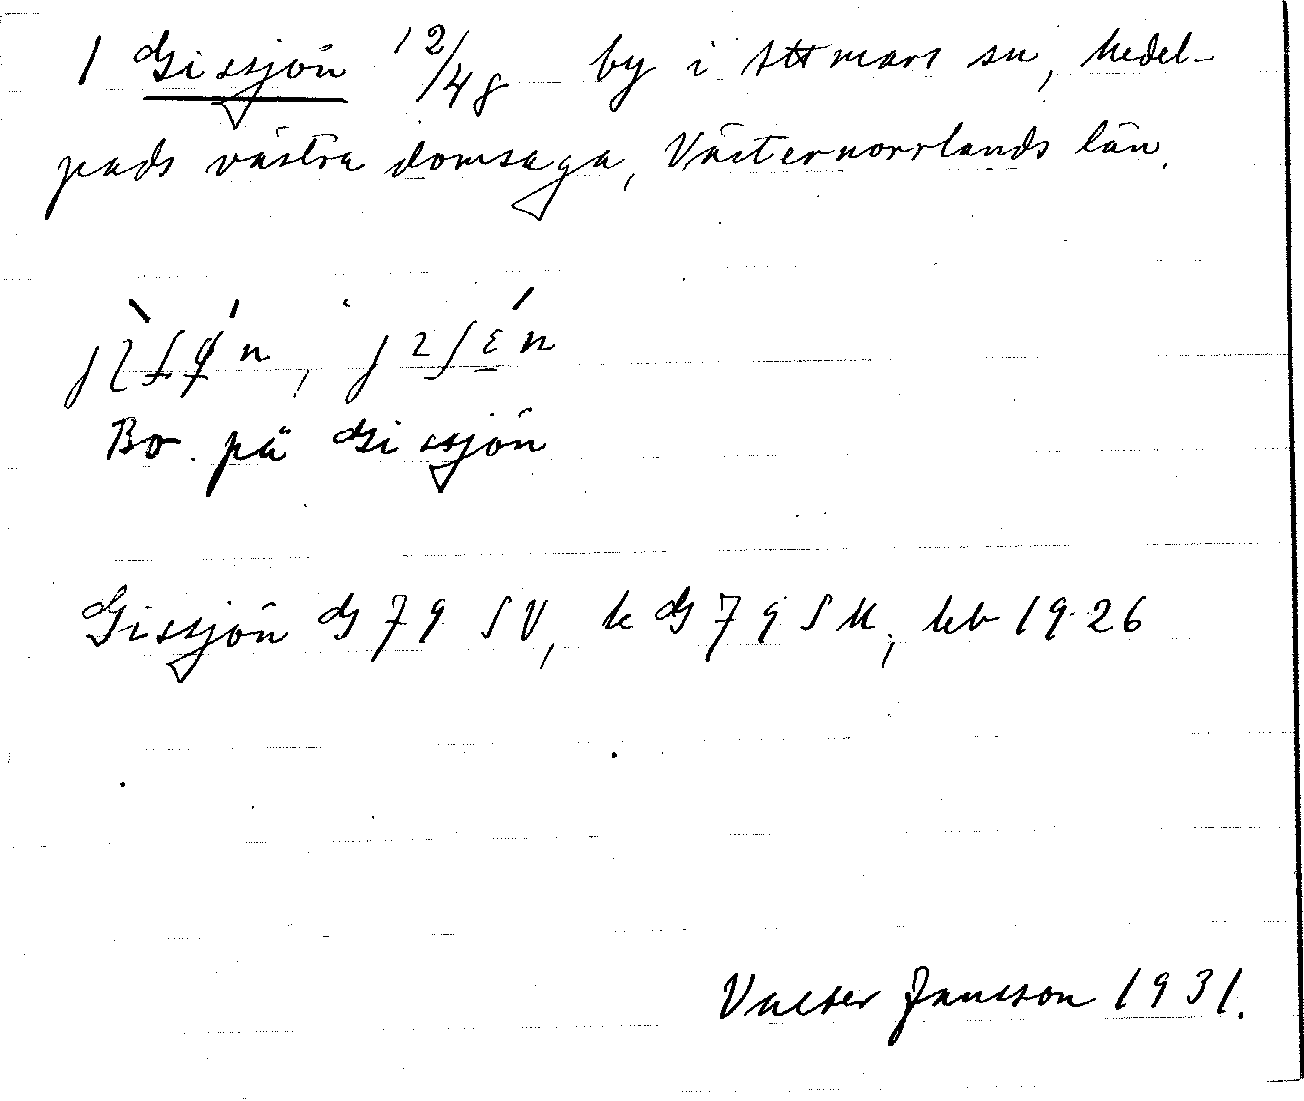 1 Gissjön 12/48 by i Attmars sn, Medel-
pads västra domsaga, Västernorrlands län.
Bor på Gissjön
Gissjön G 79 SV, k G 79 SM, jeb 1926
Valter Jansson 1931.